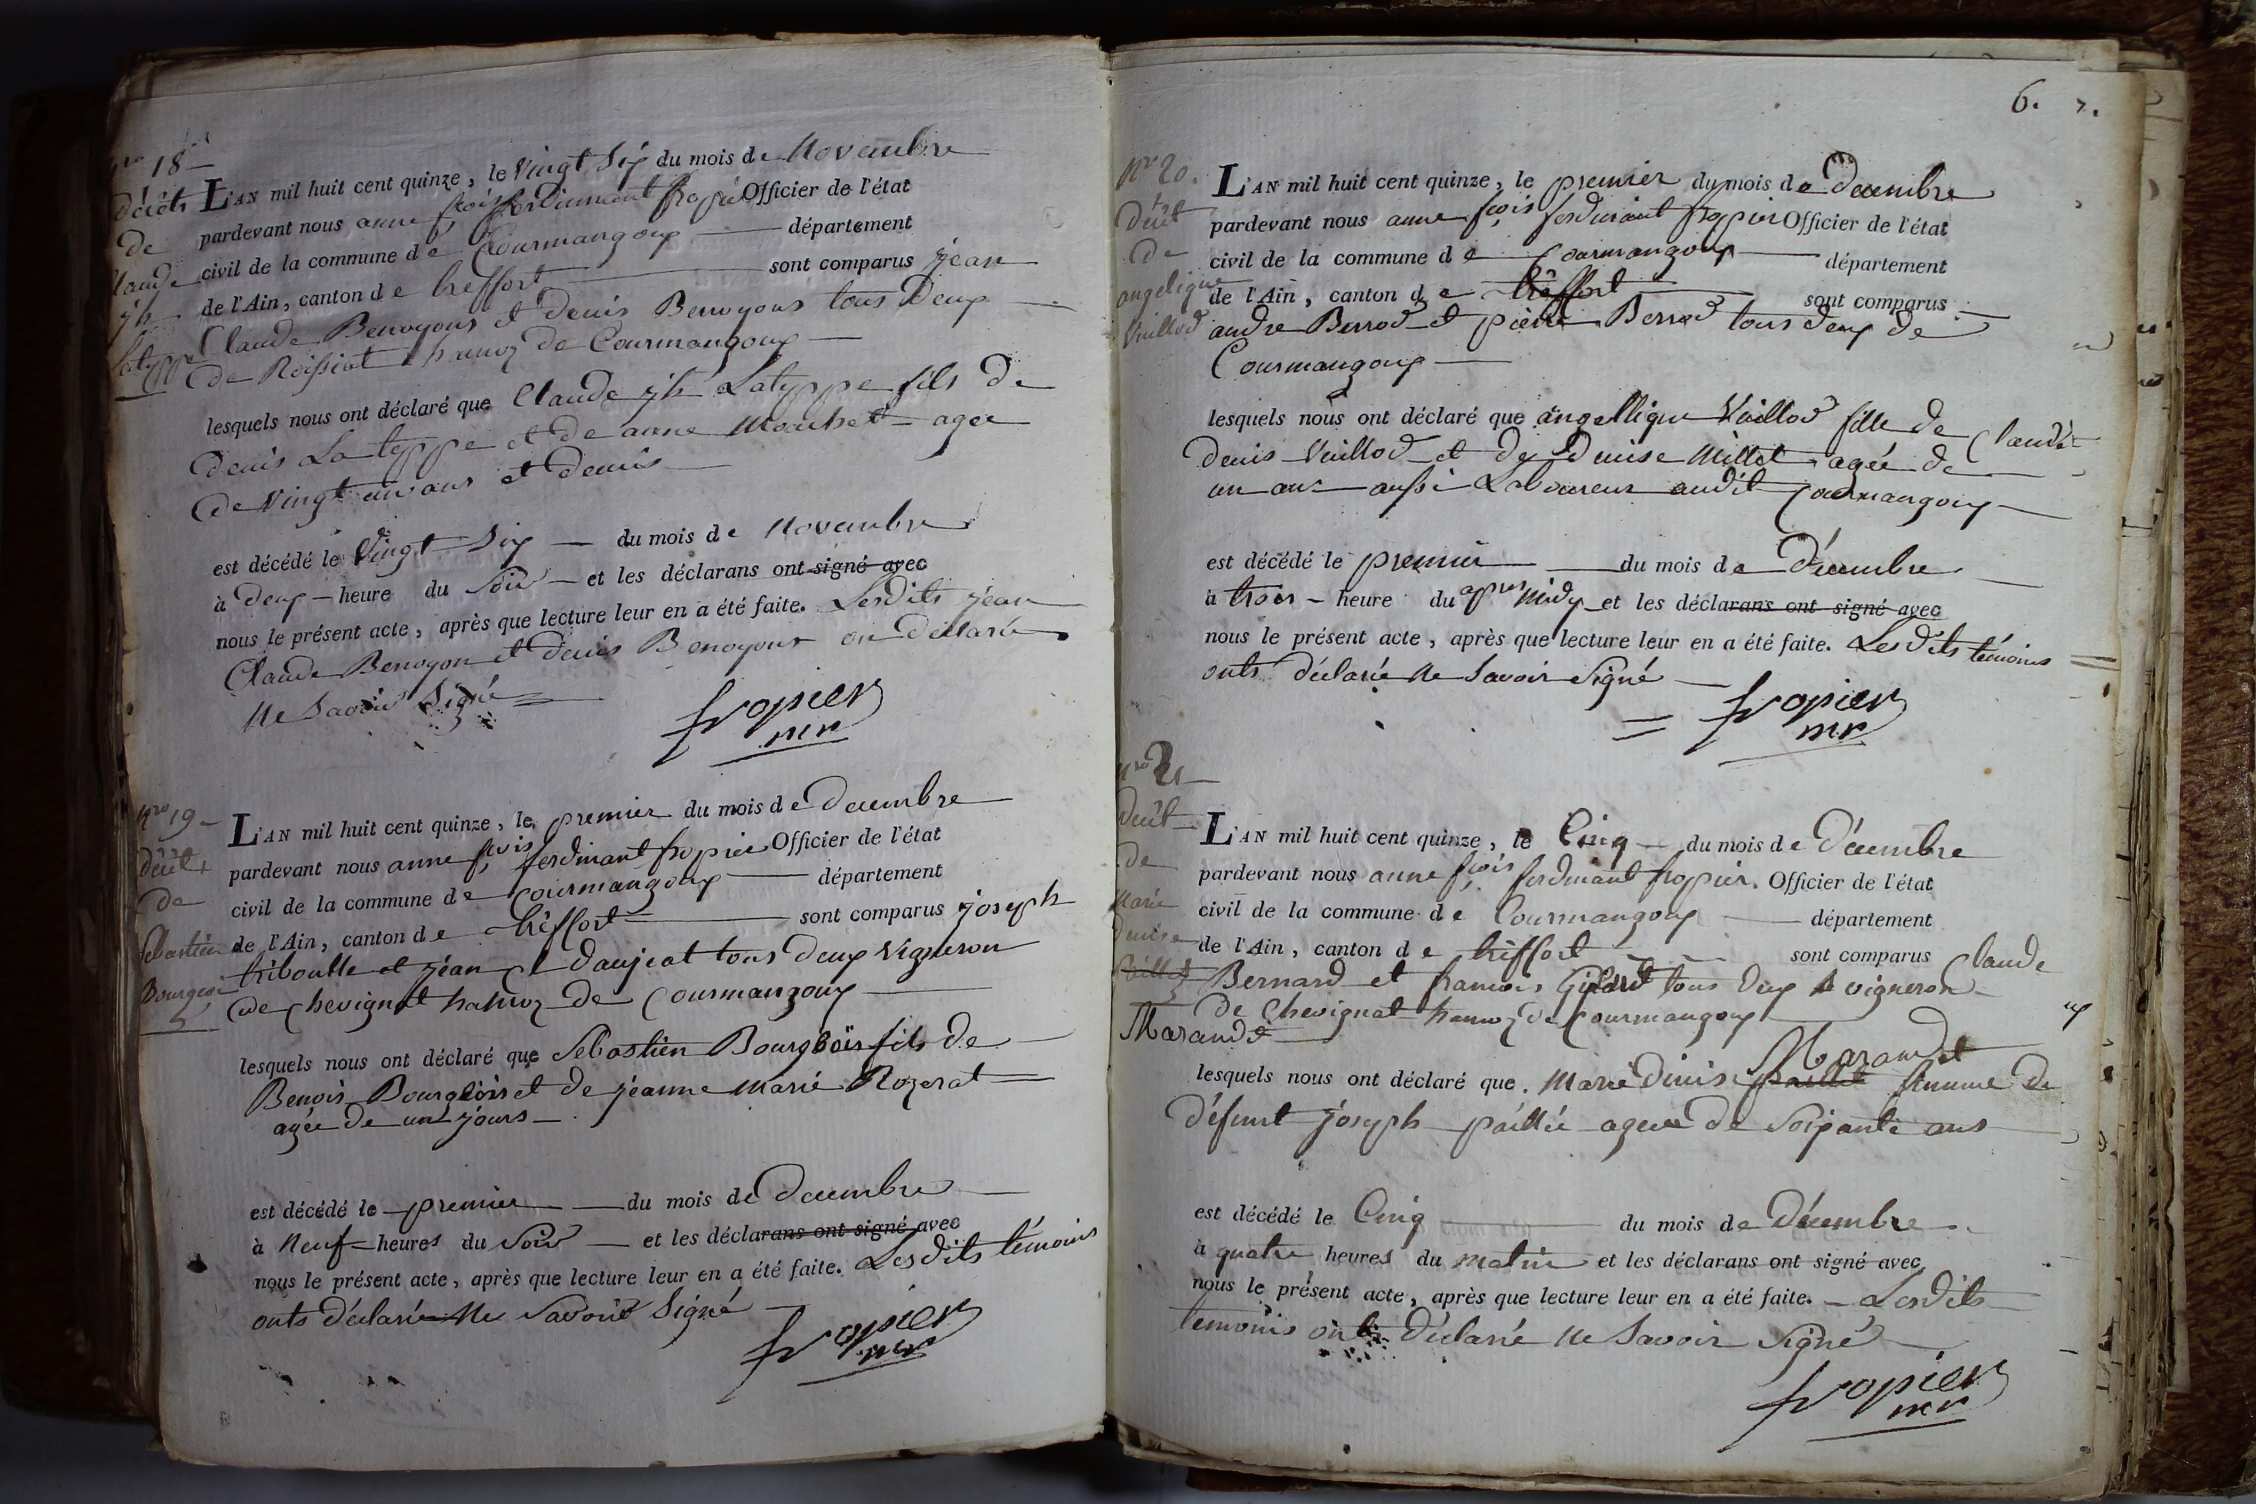 nro 18
décéts
de
Claude
jh
Latyppe
L'AN mil huit cent quinze, le Vingt Six du mois de Novembre
pardevant nous anne fçois ferdinant fropier Officier de l'état
civil de la commune de Courmangoux département
de l'Ain, canton de treffort sont comparus jean
Claude Benoyons et denis Benoyons tous deux
de Roissiat hamoz de Courmangoux
lesquels nous ont déclaré que Claude jh Latyppe fils de
denis Latyppe et de anne Mochet agée
de Vingt un ans et demis
est décédé le Vingt Six du mois de Novembre
à deux heure du Soir et les déclarans ont signé avec
nous le présent acte, après que lecture leur en a été faite. Lesdits jean
Claude Benoyon et denis Benoyons on déclarés
Ne Savoir Signé
fropier
mr
nro 19
décèt
de
Sebastien
Bourgeois
L'AN mil huit cent quinze, le premier du mois de decembre
pardevant nous anne fçois ferdinant fropier Officier de l'état
civil de la commune de Courmangoux département
de l'Ain, canton de trêffort sont comparus joseph
triboulle et jéan daujeat tous deux Vigneron
de Chevignat hamoz de Courmangoux
lesquels nous ont déclaré que Sebastien Bourgeois fils de
Benois Bourgeois et de jéanne marie Rozerat
agée de un jours
est décédé le premier du mois de decembre
à Neuf heures du Soir et les déclarans ont signé avec
nous le présent acte, après que lecture leur en a été faite. Lesdits témoins
onts déclarie Ne Savoir Signé
fropier
mr
6.
nro 20.
décèt
de
angélique
Vuillod
L'AN mil huit cent quinze, le premier du mois de Decembre
pardevant nous anne fçois ferdinant fropier Officier de l'état
civil de la commune de Courmangoux département
de l'Ain, canton de trêffort sont comparus
andre Berrod et pierre Berrod tous deux de
Courmangoux
lesquels nous ont déclaré que angellique Vuillod fille de Claude
Denis Vuillod et de Denise Millet agée de
un ans aussi Laboureur audit Courmangoux
est décédé le premier du mois de Décembre
à trois heure du apres midy et les déclarans ont signé avec
nous le présent acte, après que lecture leur en a été faite. Lesdits témoins
onts déclarié Ne Savoir Signé
fropier
mr
nro 21
décèt
de
Marie
denise
Marandet
L'AN mil huit cent quinze, le Cinq du mois de Décembre
pardevant nous anne fçois ferdinant fropier. Officier de l'état
civil de la commune de Courmangoux département
de l'Ain, canton de trêffort sont comparus Claude
Bernard et francois Girard tous deux vigneron
de Chevignat hamoz de Courmangoux
Marandet
lesquels nous ont déclaré que Marie dinise paillet femme de
défunt joseph paillié agée de Soixante ans
est décédé le Cinq du mois de Décembre
à quatre heures du matin et les déclarans ont signé avec
nous le présent acte, après que lecture leur en a été faite. Lesdits
temoins onts déclarié Ne Savoir Signé
fropier
mr